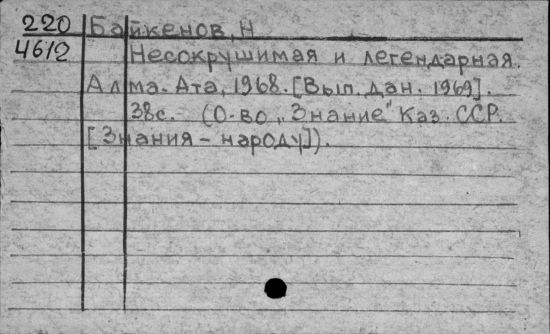 220 Байкенов, Н
4612 Несокрушимая и легендарная.
Алма-Ата, 1968. [Вып. дан. 1969].
38с. - (О-во „Знание" Каз. ССР.
[Знания - народу]).